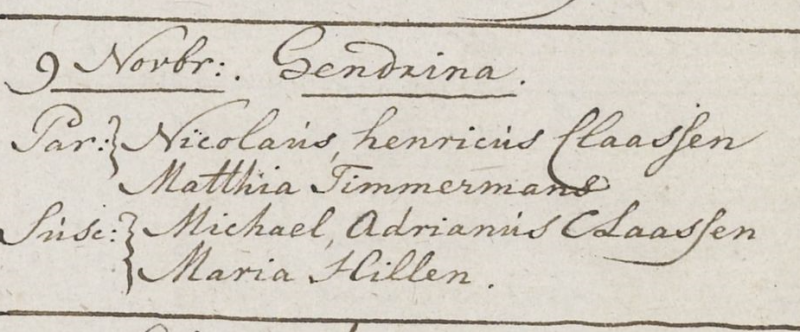 9 Novbr: . Hendrina.
Par: Nicolaus, henricus Claassen
Matthia Timmermans
Susc: Michael, Adrianus Claassen
Maria Hillen.